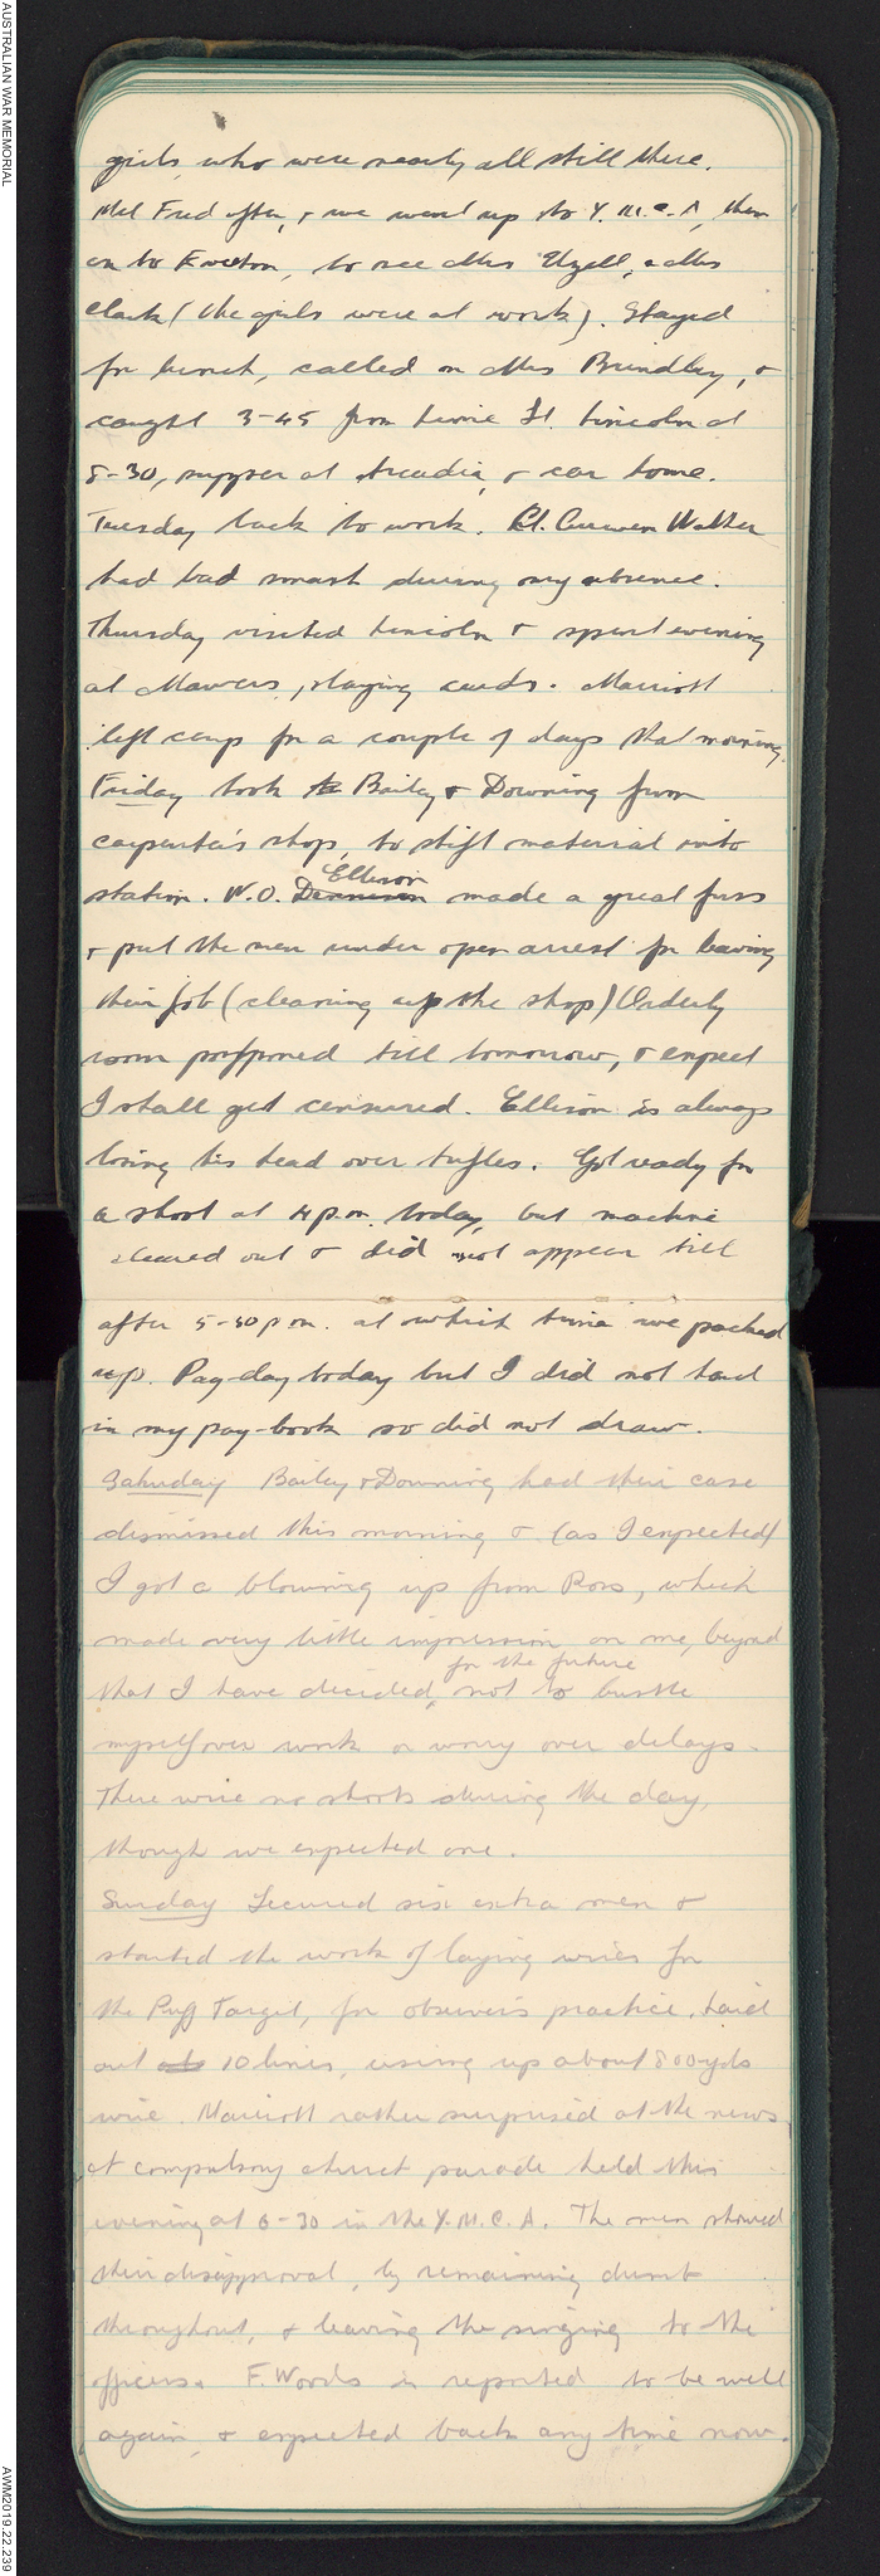 AUSTRALIAN WAR MEMORIAL
girls, who were nearly all still there.
Met Fred after, & we went up to Y.M.C.A, then
on to Everton, to see Mrs Uzell, & Mrs
Clark (the girls were at work). Stayed
for lunch, called on Mrs Brindley, &
caught 3-45 from Lime St. Lincoln at
8-30, supper at Arcadia, & car home.
Tuesday back to work. Lt. Curwen Walker
had bad smash during my absence.
Thursday visited Lincoln & spent evening
at Mawers, playing cards. Marriott
left camp for a couple of days that morning.
Friday took to Bailey & Downing from
carpenter's shop, to shift material onto
station. W.O. Dennison Ellison made a great fuss
& put the men under open arrest for leaving
their job (cleaning up the shop) Orderly
room postponed till tomorrow, & expect
I shall get censured. Ellison is always
losing his head over trifles. Got ready for
a shoot at 4 p.m. today, but machine
cleared out & did not appear till
after 5-30 p.m. at which time we packed
up. Pay-day today but I did not hand
in my pay-book so did not draw.
Saturday Bailey & Downing had their case
dismissed this morning & (as I expected)
I got a blowing up from Ross, which
made very little impression on me, beyond
that I have decided, for the future not to bustle
myself over work or worry over delays.
There were no shoots during the day,
though we expected one.
Sunday Secured six extra men &
started the work of laying wires for
the Puff Target, for observers practice. Laid
out 10 lines, using up about 800 yds
wire. Marriott rather surprised at the news.
At compulsory church parade held this
evening at 6-30 in the Y.M.C.A. The men showed
their disapproval, by remaining dumb
throughout, & leaving the singing to the
officers. F. Woods is reported to be well
again, & expected back any time now.
AWM2019.22.239